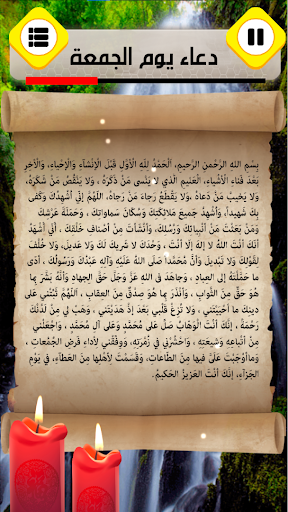 دعاء يوم الجمعة
بِسْمِ اللهِ الرَّحْمنِ الرَّحيمِ، اَلْحَمْدُ للهِ الْأَوَّلِ قَبْلَ الْإِنْشآءِ وَالْإِحْياءِ، وَالْآخِرِ
بَعْدَ فَناءِ الْأَشْياءِ، الْعَليمِ الَّذي لا يَنْسى مَنْ ذَكَرَهُ ، وَلا يَنْقُصُ مَنْ شَكَرَهُ،
وَلا يَخيبُ مَنْ دَعاهُ ،وَلا يَقْطَعُ رَجاءَ مَنْ رَجاهُ، اَللّهُمَّ إِنّي أُشْهِدُكَ وَكَفى
بِكَ شَهيداً، وَأُشْهِدُ جَميعَ مَلائِكَتِكَ وَسُكّانَ سَماواتِكَ ، وَحَمَلَةَ عَرْشِكَ
وَمَنْ بَعَثْتَ مِنْ أَنْبِيائِكَ وَرُسُلِكَ، وَأَنْشَأْتَ مِنْ أَصْنافِ خَلْقِكَ ، أَنّي أَشْهَدُ
أَنَّكَ أَنْتَ اللهُ لا إِلهَ إِلّا أَنْتَ ، وَحْدَكَ لا شَريكَ لَكَ وَلا عَديلَ، وَلا خُلْفَ
لِقَوْلِكَ وَلا تَبْديلَ، وَأَنَّ مُحَمَّداً صَلَّى اللهُ عَلَيْهِ وَآلِهِ عَبْدُكَ وَرَسُولُكَ، أَدّى
ما حَمَّلْتَهُ إِلَى الْعِبادِ ، وَجاهَدَ فِى اللهِ عَزَّ وَجَلَّ حَقَّ الْجِهادِ وَأَنَّهُ بَشَّرَ بِما
هُوَ حَقٌّ مِنَ الثَّوابِ ، وَأَنْذَرَ بِما هُوَ صِدْقٌ مِنَ الْعِقابِ ، اَللّهُمَّ ثَبِّتْني عَلى
دينِكَ ما أَحْيَيْتَني، وَلا تُزِغْ قَلْبي بَعْدَ إِذْ هَدَيْتَني ، وَهَبْ لي مِنْ لَدُنْكَ
رَحْمَةً ، إِنَّكَ أَنْتَ الْوَهّابُ صَلِّ عَلى مُحَمَّدٍ ، وَعَلى آلِ مُحَمَّدٍ ، وَاجْعَلْني
مِنْ أَتْباعِهِ وَشيعَتِهِ ، وَاحْشُرْني في زُمْرَتِهِ، وَوَفِّقْني لأَداءِ فَرْضِ الْجُمُعاتِ ،
وَماأَوْجَبْتَ عَلَيَّ فيها مِنَ الطّاعاتِ، وَقَسَمْتَ لِأَهْلِها مِنَ الْعَطآءِ، في يَوْمِ
الْجَزآءِ، إِنَّكَ أَنْتَ الْعَزيزُ الْحَكيمُ.